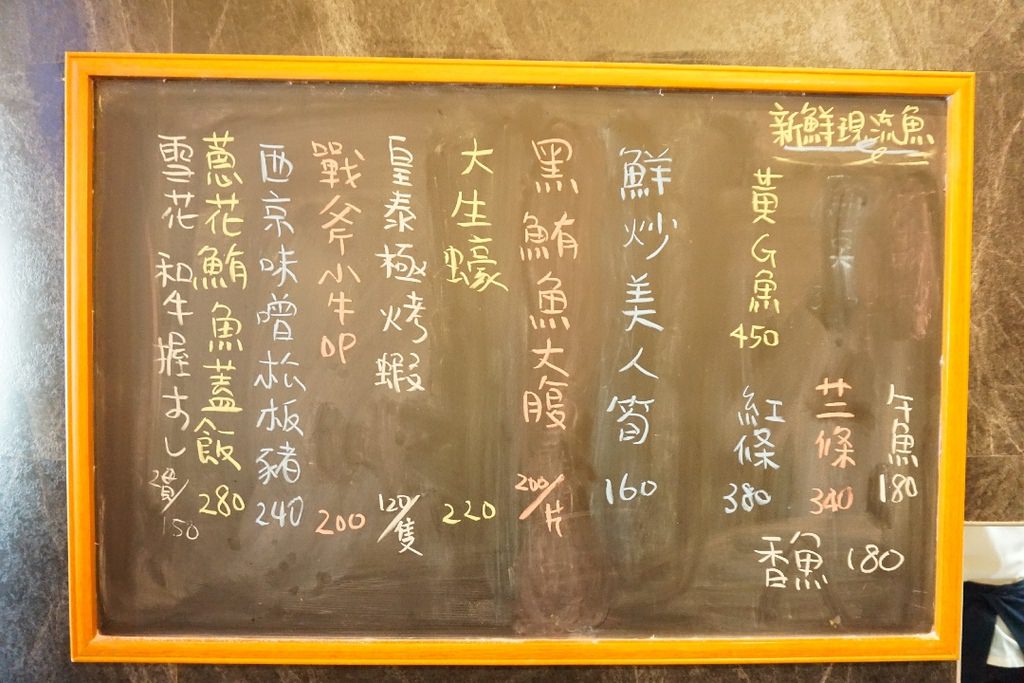 新鮮現流魚
午魚 180
苎條 340
黃G魚 450
紅條 380
香魚 180
鮮炒美人筍 160
黑鮪魚大腹 200/片
大生蠔 220
皇泰極烤蝦 120/隻
戰斧小牛OP 200
西京味噌松板豬 240
蔥花鮪魚蓋飯 280
雪花和牛握すし 2貫/150